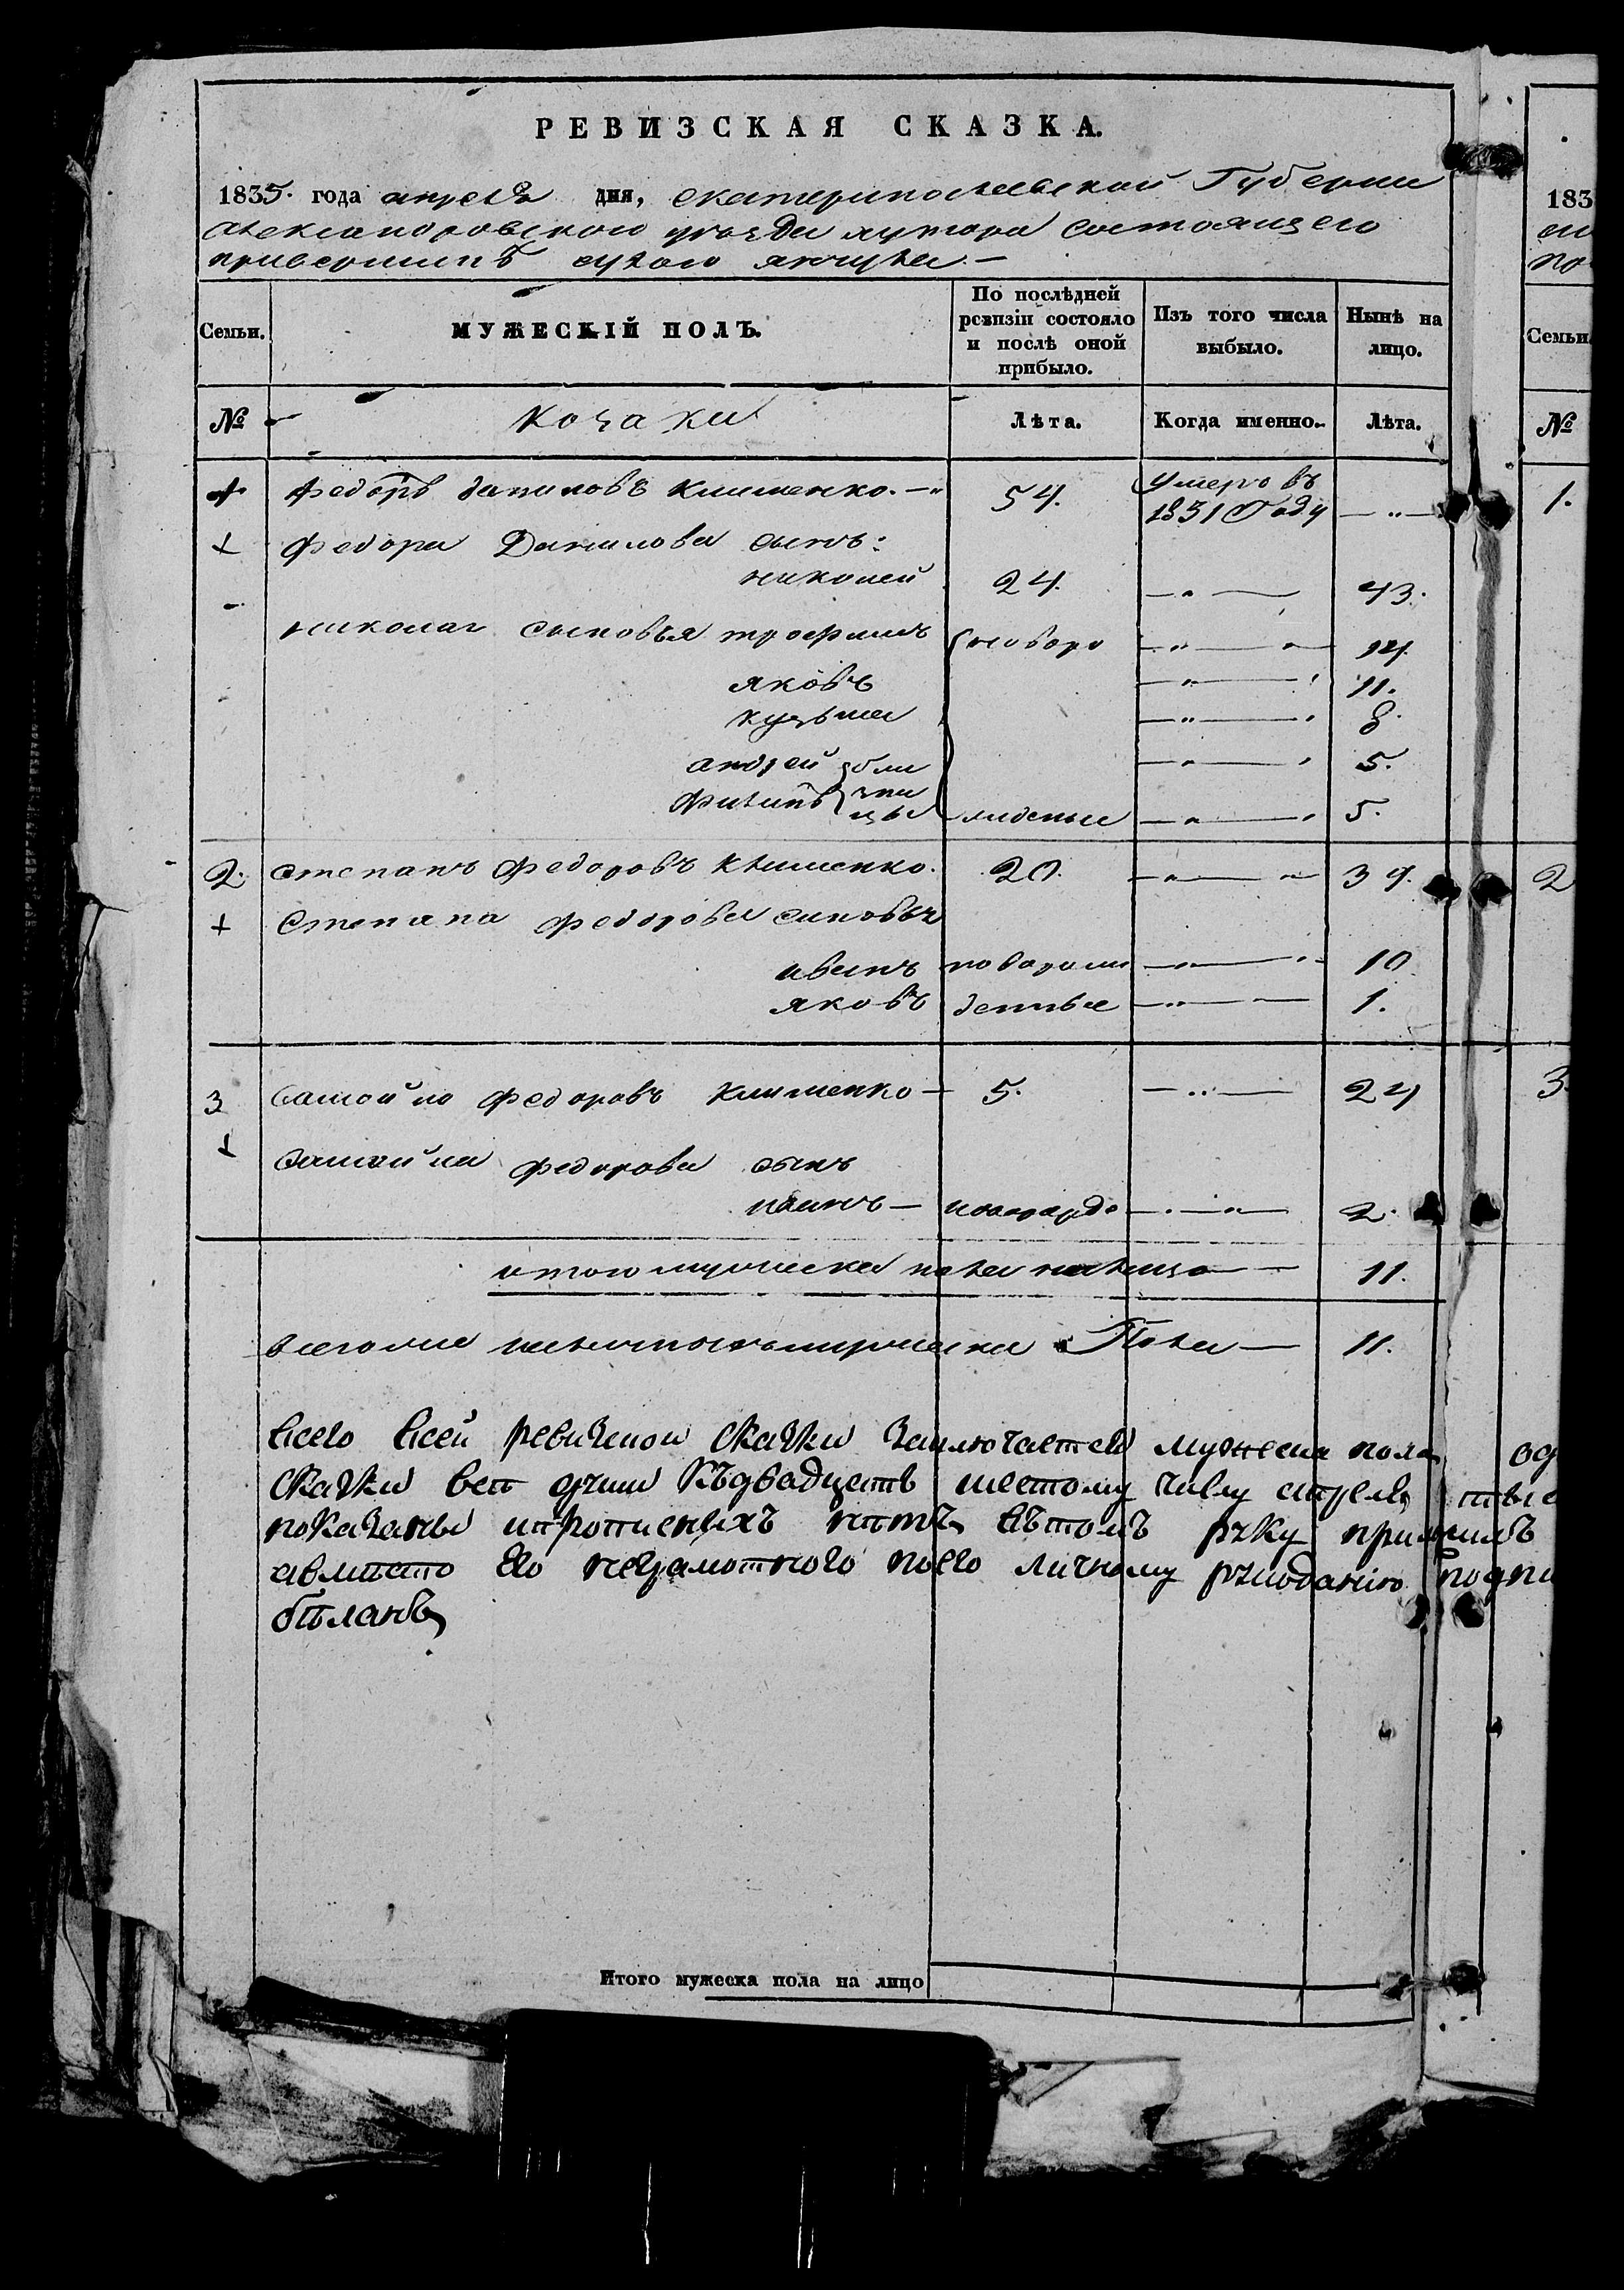 РЕВИЗСКАЯ СКАЗКА.
1835. года апреля дня, екатеринославской Губернии
александровского уезда хутора состоящего
привершинѣ сухого янчула —
Семьи.
МУЖЕСКІЙ ПОЛЪ.
По послѣдней ревизіи состояло и послѣ оной прибыло.
Изъ того числа выбыло.
Нынѣ на лицо.
№ козаки Лѣта. Когда именно. Лѣта.
федоръ даниловъ клименко. 54. Умеръ въ 1831 Году — " —
федора Данилова сынъ:
николай 24. — " — 43.
николая сыновья трофимъ новоро — " — 14.
яковъ — " — 11.
кузьма — " — 8.
андрей бли — " — 5.
филипъ зни цы жденые — " — 5.
2. степанъ федоровъ клименко. 20. — " — 39.
степана федорова синовья
иванъ новорож — " — 10
яковъ денные — " — 1.
3 самойло федоровъ клименко — 5. — " — 24
самойла федорова сынъ
иванъ — новорожде — " — 2.
итого мужеска пола налицо — 11.
всего мужеска Пола — 11.
всего всей ревизской сказки заключается мужеска пола
сказки веп души Къдвадцеть шестому числу апреля
показаны ипрописныхъ нѣтъ вътомъ руку приложилъ
авмѣсто его неграмотного поего личному рукоданію подпи
бѣланъ
Итого мужеска пола на лицо
183
Семьи
№
1.
2
3